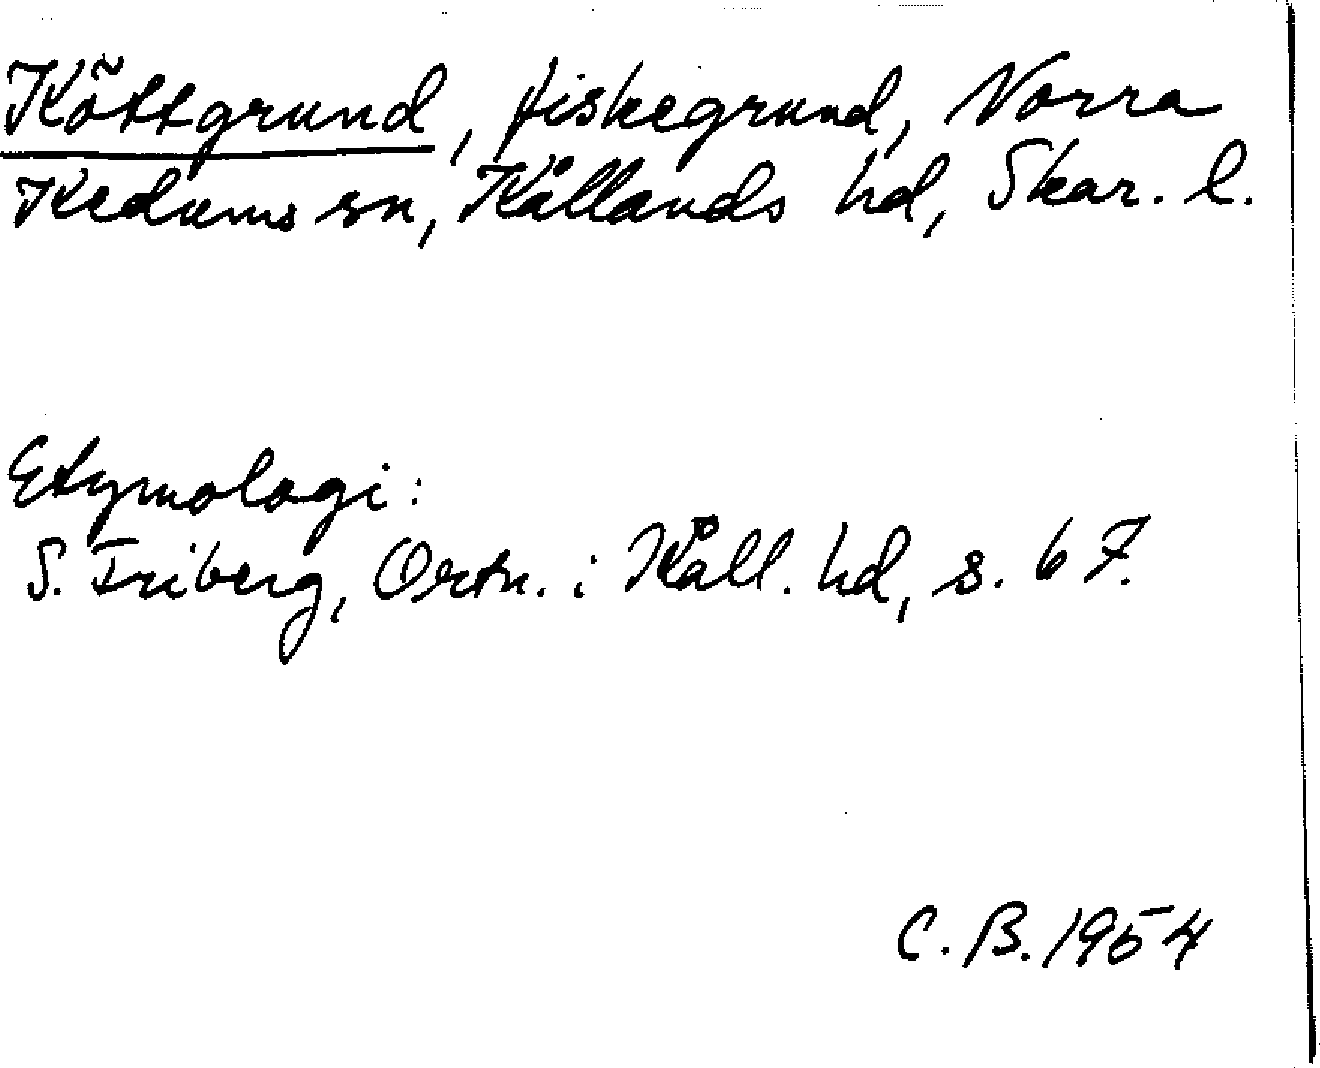 Köttgrund, fiskegrund, Norra
Kedums sn, Kållands hd, Skar. l.
Etymologi:
S. Friberg, Ortn. i Kåll. hd, s. 67.
C. B. 1954